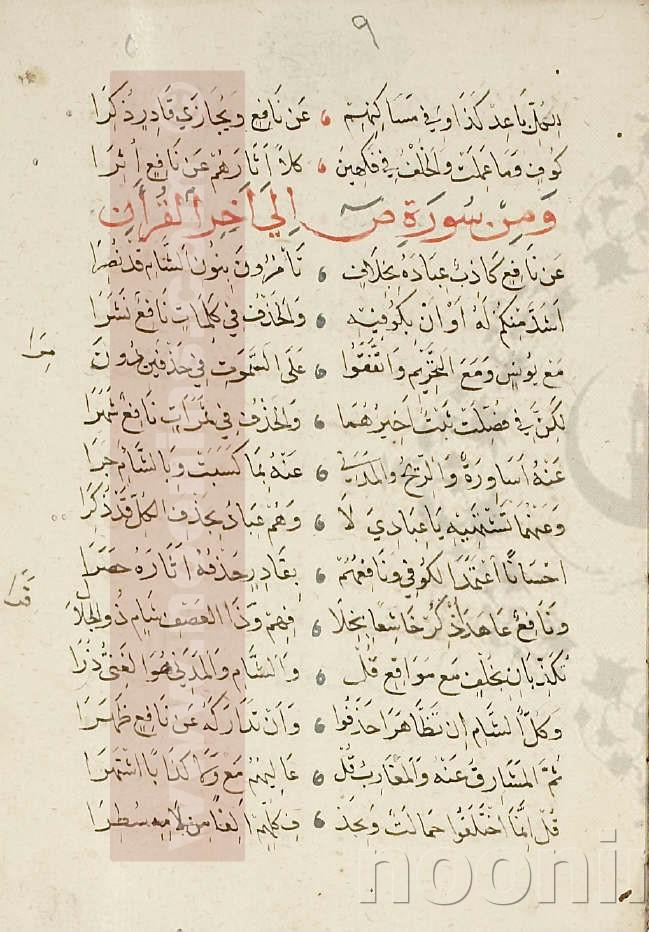 ٩
الكل باعد كذا وفي مساكنهم عن نافع ويجازي قادر ذكرا
كوف وما عملت والخلف في فكهين كلا آثارهم عن نافع أثرا
ومن سورة ص إلى آخر القرآن
عن نافع كاذب عباده بخلاف تأمرون بنون الشام قد نصرا
أشد منكم له أو أن بكوفيه والحذف في كلمات نافع نشرا
مع يونس ومع التحريم واتفقوا على السموت في حذفين دون
مرا
لكن في فصلت ثبت أخيرهما والحذف في ثمرات نافع شهرا
عنه أساورة والريح والمدني عنه بما كسبت وبالشام جرا
وعنهما تشتهيه يا عبادي لا وهم عباد بحذف الكل قد ذكرا
احسانا اعتمد الكوفي ونافعهم بقادر حذفه اثارة حصرا
ونافع عاهد اذكر خاشعا بخلا فهم وذا العصف شام ذو الجلا
قرا
تكذبان بخلف مع مواقع قل والشام والمدني هو الغني ذرا
وكل الشام إن تظاهرا حذفوا وأن تداركه عن نافع ظهرا
ثم المشارق عنه والمغارب قل عاليهم مع ولا كذابا اشتهرا
قل إنما اختلفوا جمالت وبحذ ف كلهم ألفا من لامه سطرا
noonl